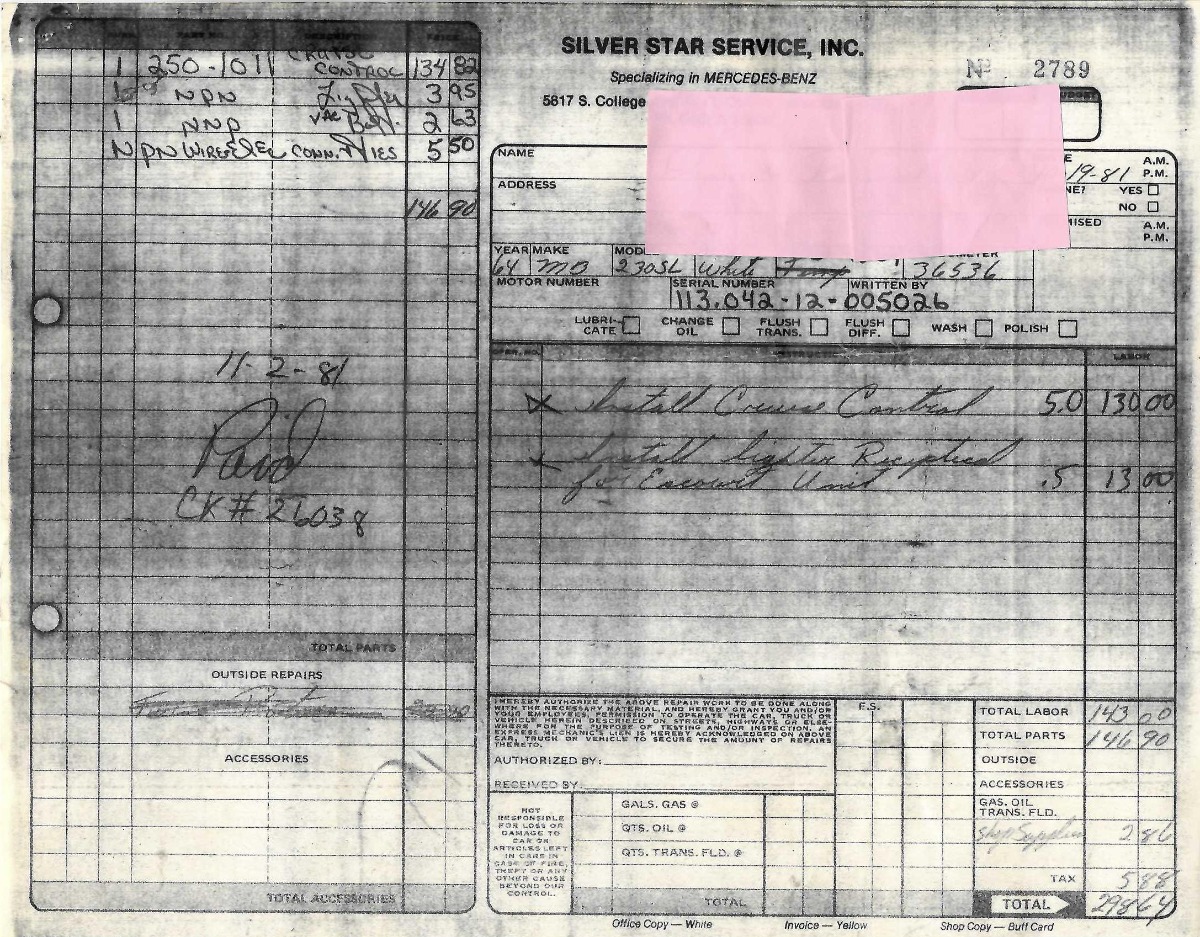 SILVER STAR SERVICE, INC.
Specializing in MERCEDES-BENZ
5817 S. College
Nº 2789
PRICE
1 250-1011 CRUISE CONTROL 134 82
NPN 3 95
1 NNP VAC 2 63
N PN WIRE CONN. TIES 5 50
146 90
11-2-81
Paid
CK# 26038
TOTAL PARTS
OUTSIDE REPAIRS
ACCESSORIES
TOTAL ACCESSORIES
NAME
ADDRESS
19-81
A.M.
P.M.
NE? YES
NO
MISED A.M.
P.M.
YEAR MAKE MOD
64 MB 230SL White 36536
MOTOR NUMBER SERIAL NUMBER WRITTEN BY
113.042-12-005026
LUBRI-CATE CHANGE OIL FLUSH TRANS. FLUSH DIFF. WASH POLISH
OPER. NO. INSTRUCTIONS LABOR
Install Cruise Control 5.0 130 00
Install Lighter Recptical
for Escourt Unit .5 13 00
I HEREBY AUTHORIZE THE ABOVE REPAIR WORK TO BE DONE ALONG
WITH THE NECESSARY MATERIAL, AND HEREBY GRANT YOU AND/OR
YOUR EMPLOYEES, PERMISSION TO OPERATE THE CAR, TRUCK OR
VEHICLE HEREIN DESCRIBED ON STREETS, HIGHWAYS OR ELSE-
WHERE FOR THE PURPOSE OF TESTING AND/OR INSPECTION. AN
EXPRESS MECHANIC'S LIEN IS HEREBY ACKNOWLEDGED ON ABOVE
CAR, TRUCK OR VEHICLE TO SECURE THE AMOUNT OF REPAIRS
THERETO.
AUTHORIZED BY:
RECEIVED BY:
F.S.
NOT
RESPONSIBLE
FOR LOSS OR
DAMAGE TO
CAR OR
ARTICLES LEFT
IN CARS IN
CASE OF FIRE,
THEFT OR ANY
OTHER CAUSE
BEYOND OUR
CONTROL.
GALS. GAS @
QTS. OIL @
QTS. TRANS. FLD. @
TOTAL
TOTAL LABOR 143 00
TOTAL PARTS 146 90
OUTSIDE
ACCESSORIES
GAS. OIL
TRANS. FLD.
Shop Supplies 2 86
TAX 5 88
TOTAL 298 64
Office Copy — White Invoice — Yellow Shop Copy — Buff Card